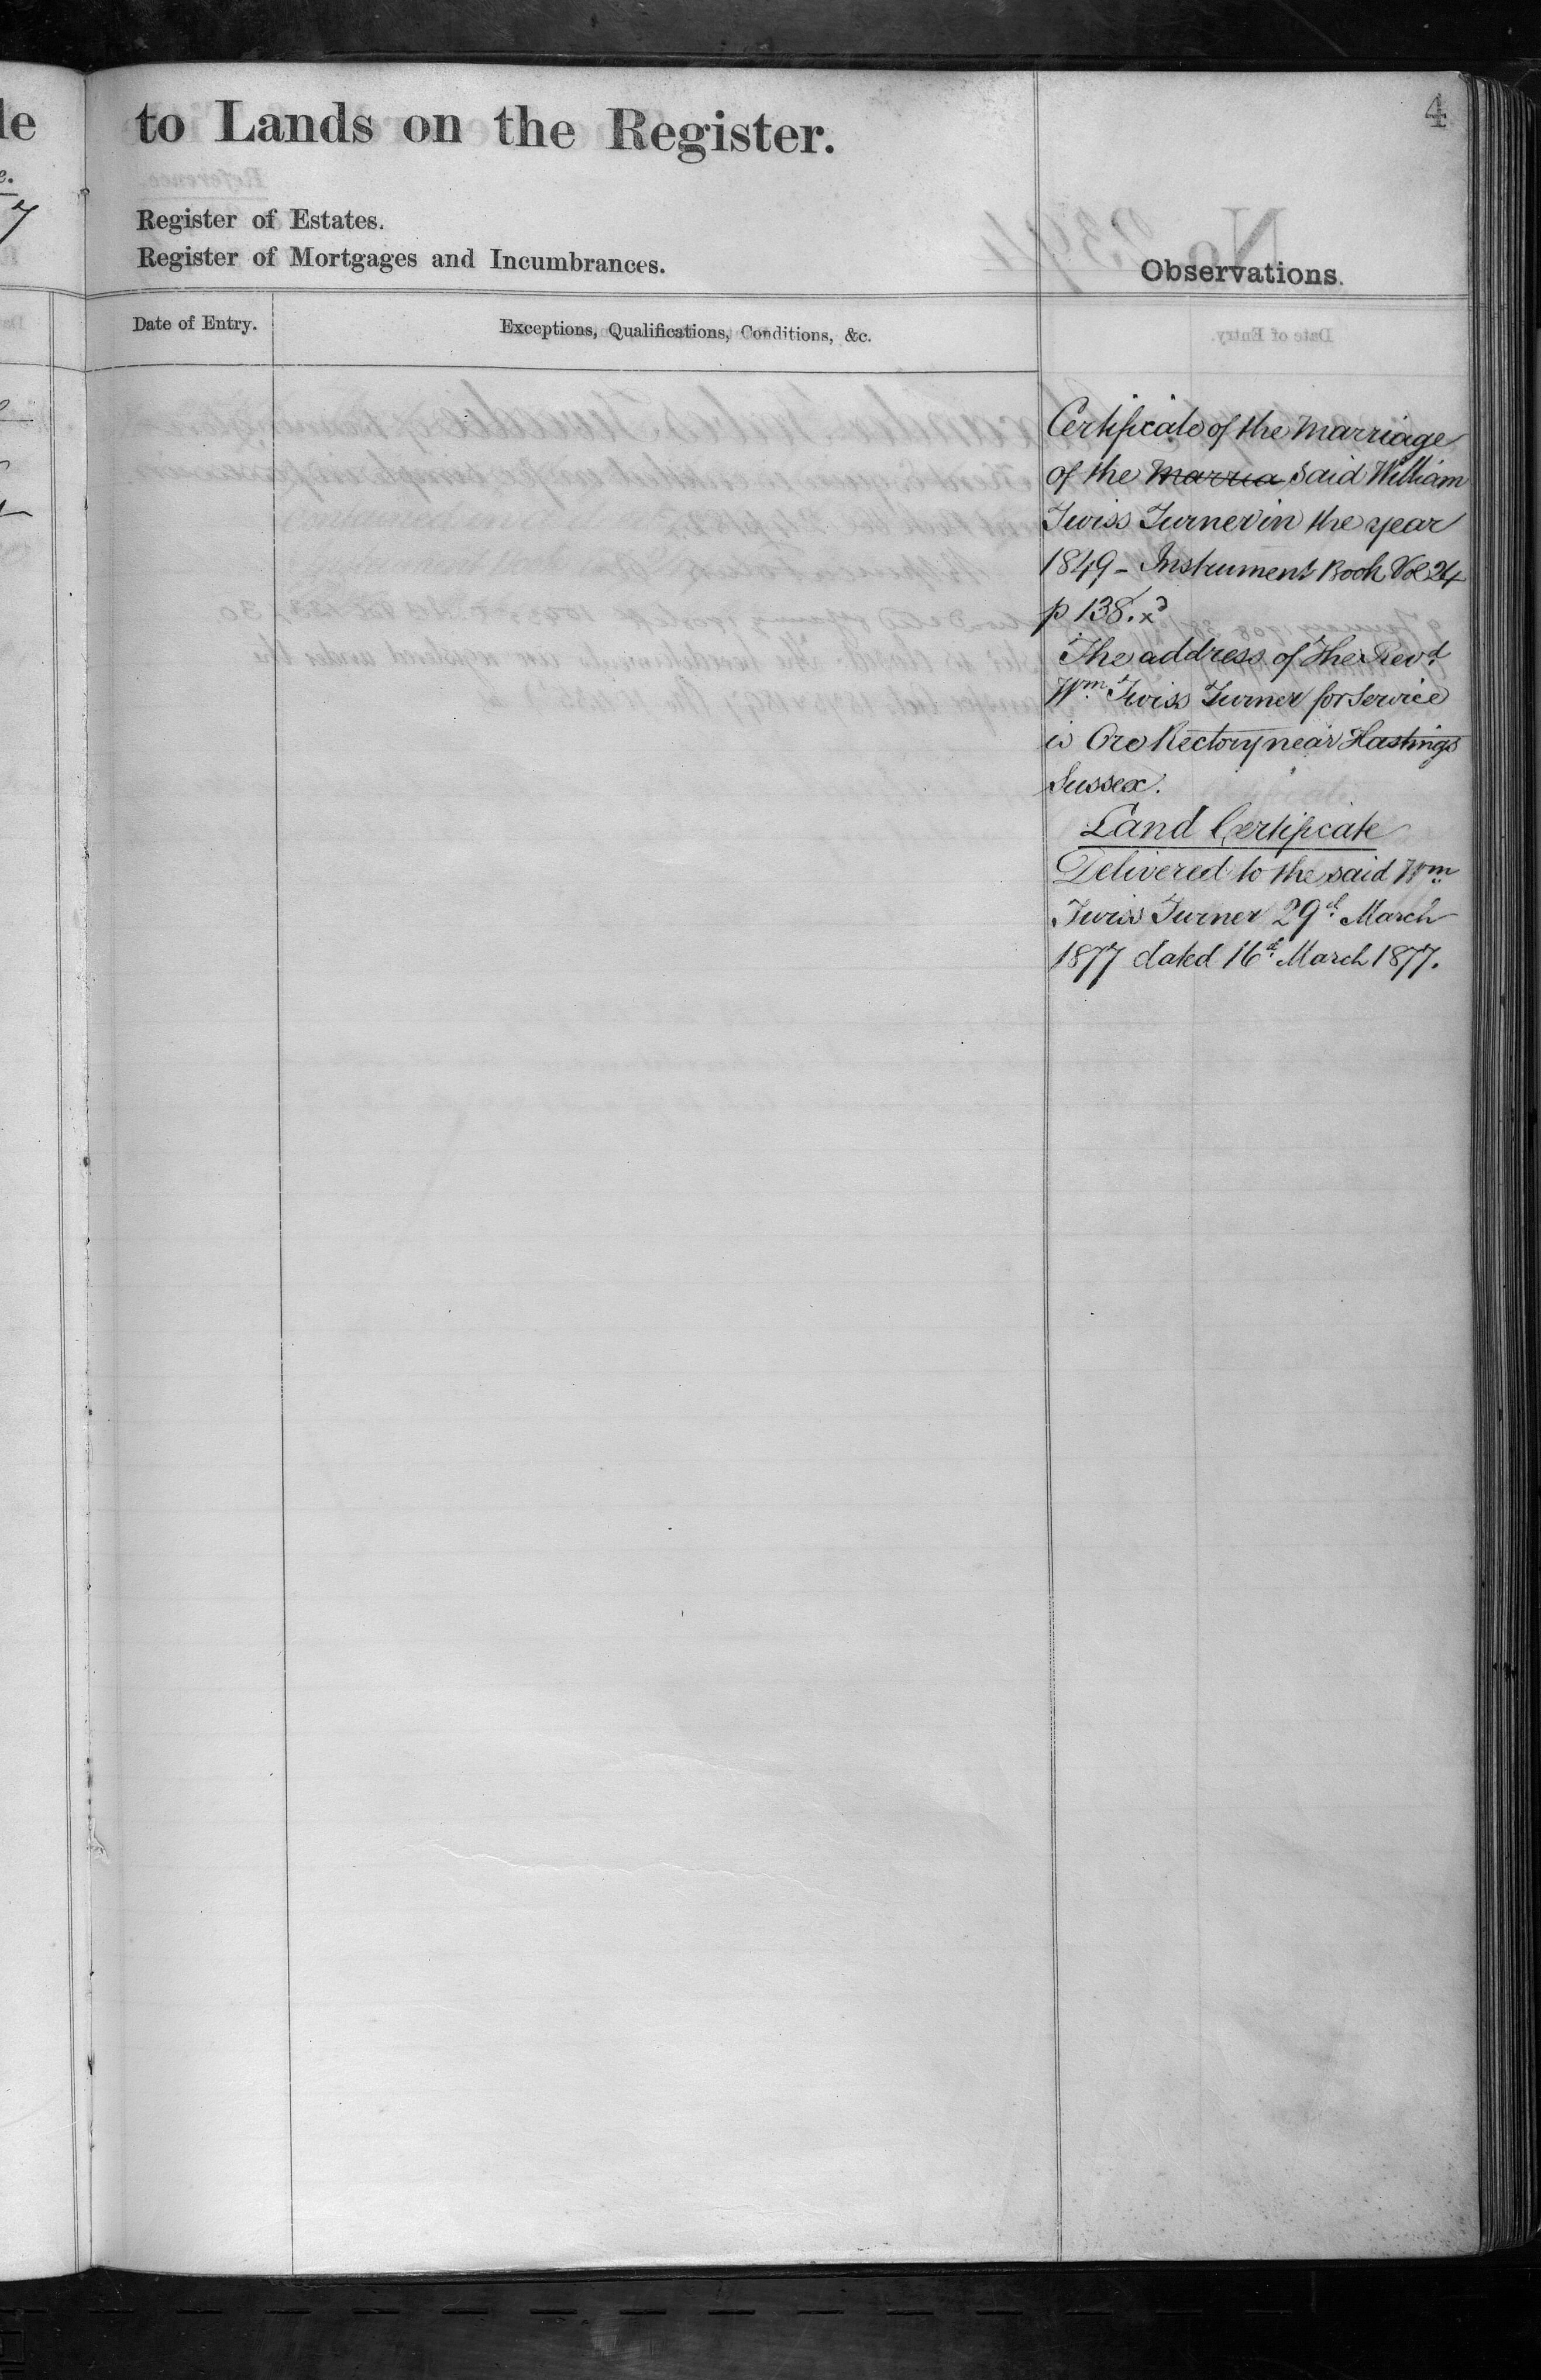 le
to Lands on the Register.
4
Register of Estates.
Register of Mortgages and Incumbrances.
Observations.
Date of Entry.
Exceptions, Qualifications, Conditions, &c.
Certificate of the Marriage
of the Marria said William
Twiss Turner in the year
1849 - Instrument Book Vol 24
p 138. xd
The address of the Revd
Wm Twiss Turner for Service
is Ore Rectory near Hastings
Sussex.
Land Certificate
Delivered to the said Wm
Twiss Turner 29th March
1877 dated 16th March 1877.